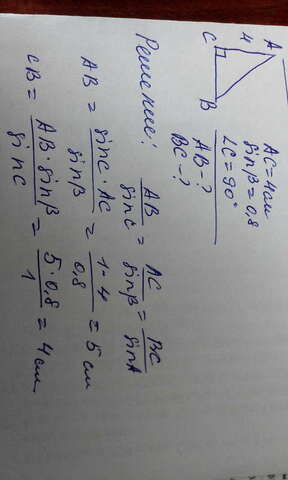 A
4
C
B
AC=4см
sinβ=0,8
∠C=90°
AB-?
BC-?
Решение: AB/sinC = AC/sinβ = BC/sinA
AB = sinC·AC/sinβ = 1·4/0,8 = 5 см
CB = AB·sinβ/sinC = 5·0,8/1 = 4 см.